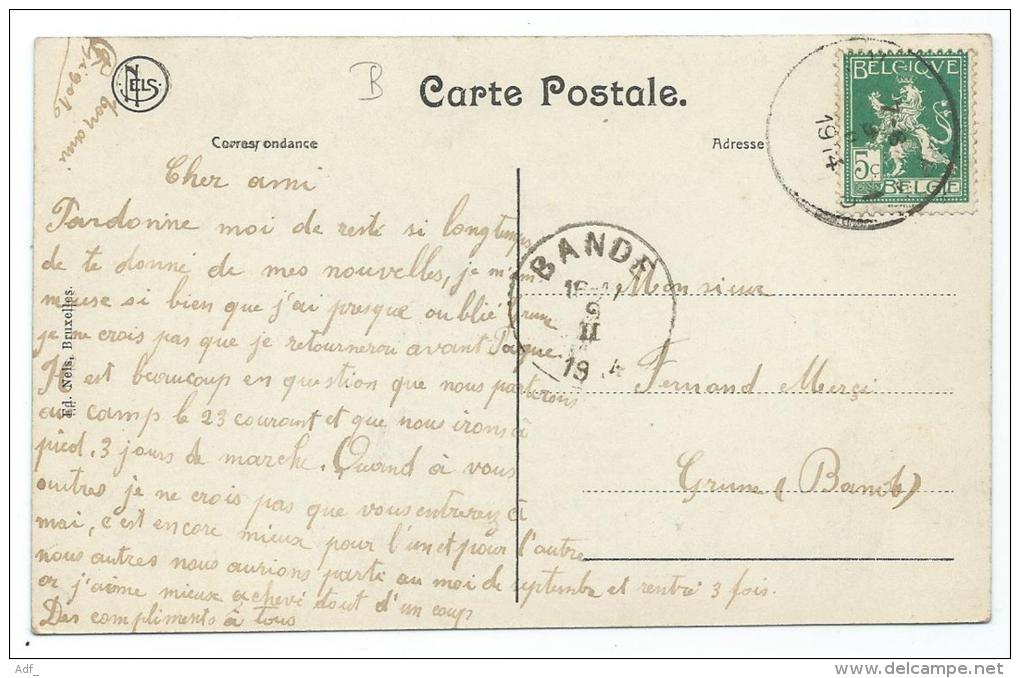 NELS
B
Carte Postale.
Correspondance
Adresse
BELGIQUE
5c
BELGIE
1914
bon ami
Cher ami
Pardonne moi de resté si longtemps
de te donné de mes nouvelles, je m'am
meuse si bien que j'ai presque oublié
je ne crois pas que je retournerou avant Paque.
Il est beaucoup en question que nous parterons
au camp le 23 courant et que nous irons à
pied, 3 jours de marche. Quand à vous
autres je ne crois pas que vous entrerez à
mai, c'est encore mieux pour l'un et pour l'autre
nous autres nous aurions parté au moi de septembre et rentré 3 fois.
or j'aime mieux achevé tout d'un coup
Des compliments à tous
BANDE
9
II
19 4
Monsieur
Fernand Merçi
Grune (Bande)
Ed. Nels, Bruxelles.
Adf_
www.delcampe.net